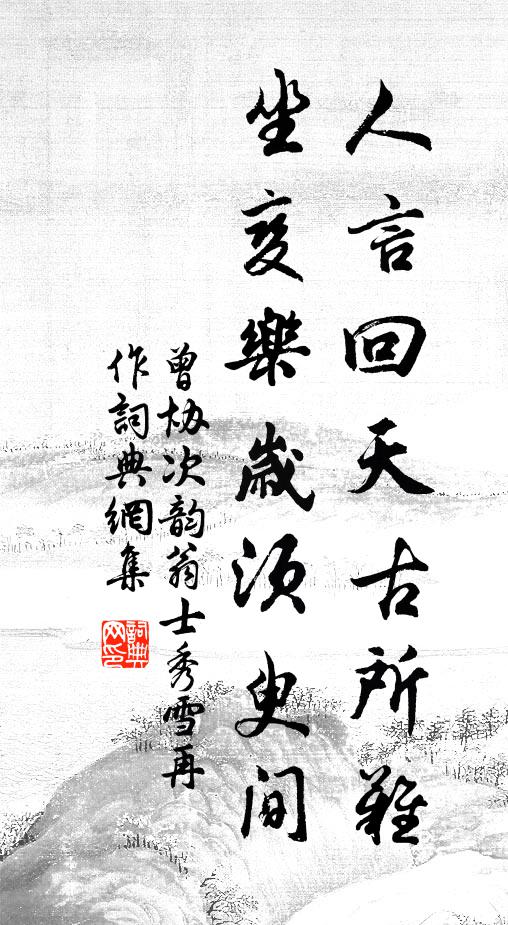 人言回天古所難
坐变樂歲須臾間
曾协次韵翁士秀雪再
作詞典網集
詞典网印